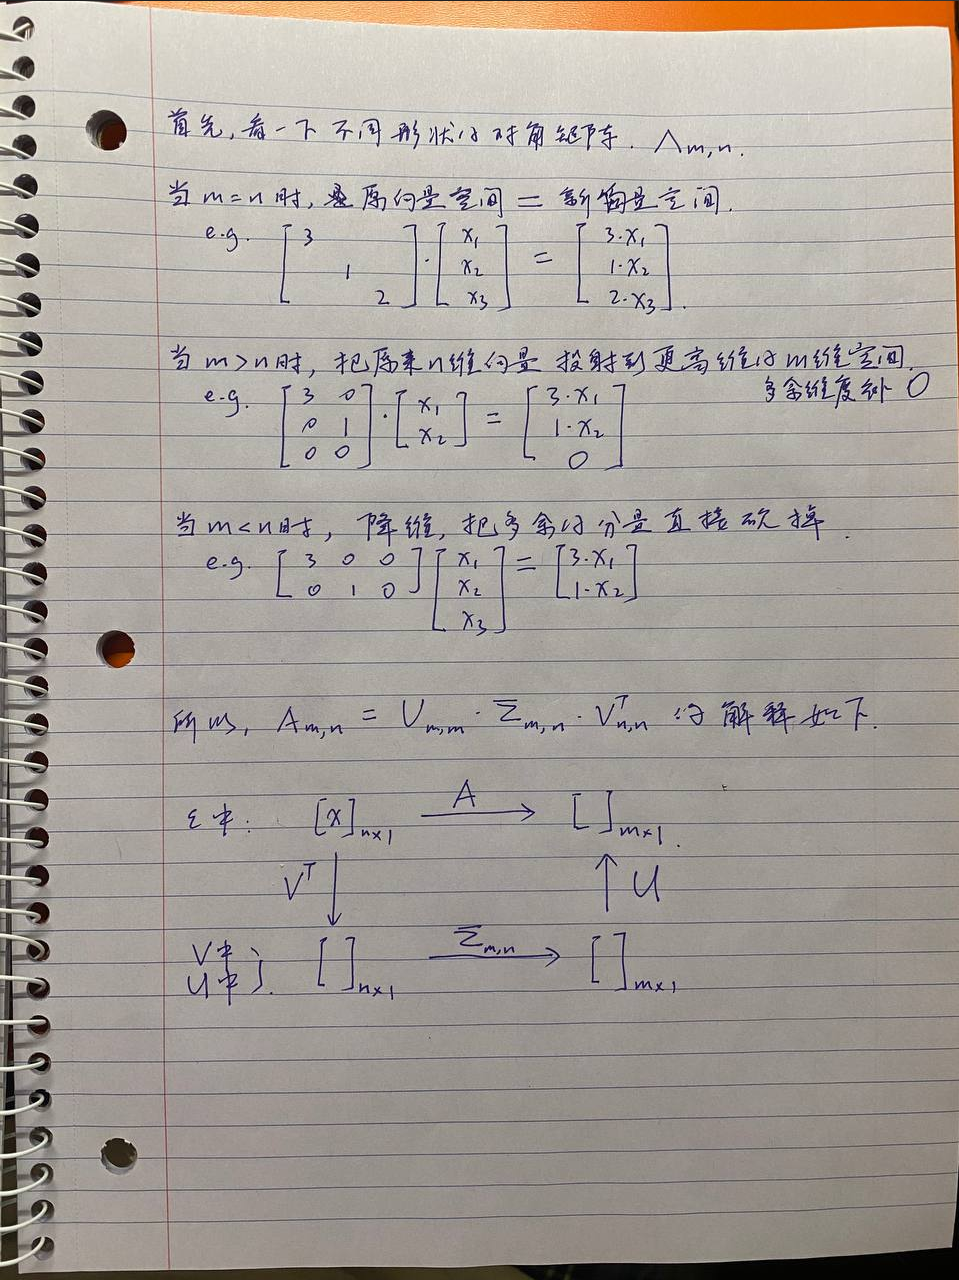 首先,看一下不同形状的对角矩阵. Λm,n.
当 m=n 时, 原向量空间 = 新向量空间.
e.g. [3 1 2] · [x₁ x₂ x₃] = [3·x₁ 1·x₂ 2·x₃].
当 m>n 时, 把原来n维向量投射到更高维的m维空间.
多余维度补 0
e.g. [3 0; 0 1; 0 0] · [x₁ x₂] = [3·x₁ 1·x₂ 0]
当 m<n 时, 降维, 把多余的分量直接砍掉.
e.g. [3 0 0; 0 1 0] [x₁ x₂ x₃] = [3·x₁ 1·x₂]
所以, Am,n = Um,m · Σm,n · Vᵀn,n 的解释如下.
ε中: [x]n×1 A→ [ ]m×1.
Vᵀ↓ ↑U
V中
U中 } [ ]n×1 Σm,n→ [ ]m×1